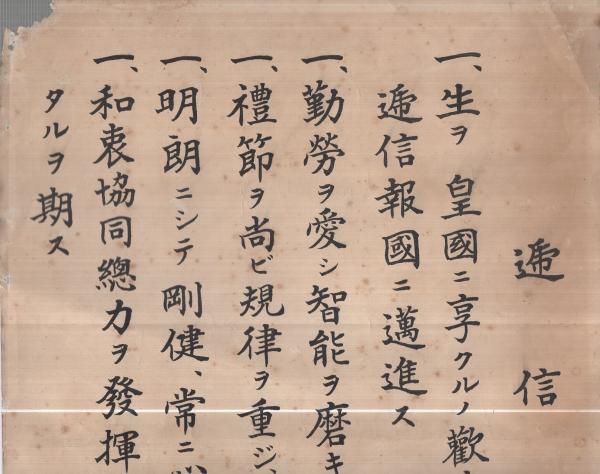 遞信
一、生ヲ 皇國ニ享クルノ歡
遞信報國ニ邁進ス
一、勤勞ヲ愛シ智能ヲ磨キ
一、禮節ヲ尚ビ規律ヲ重ジ、
一、明朗ニシテ剛健、常ニ
一、和衷協同總力ヲ發揮
タルヲ期ス